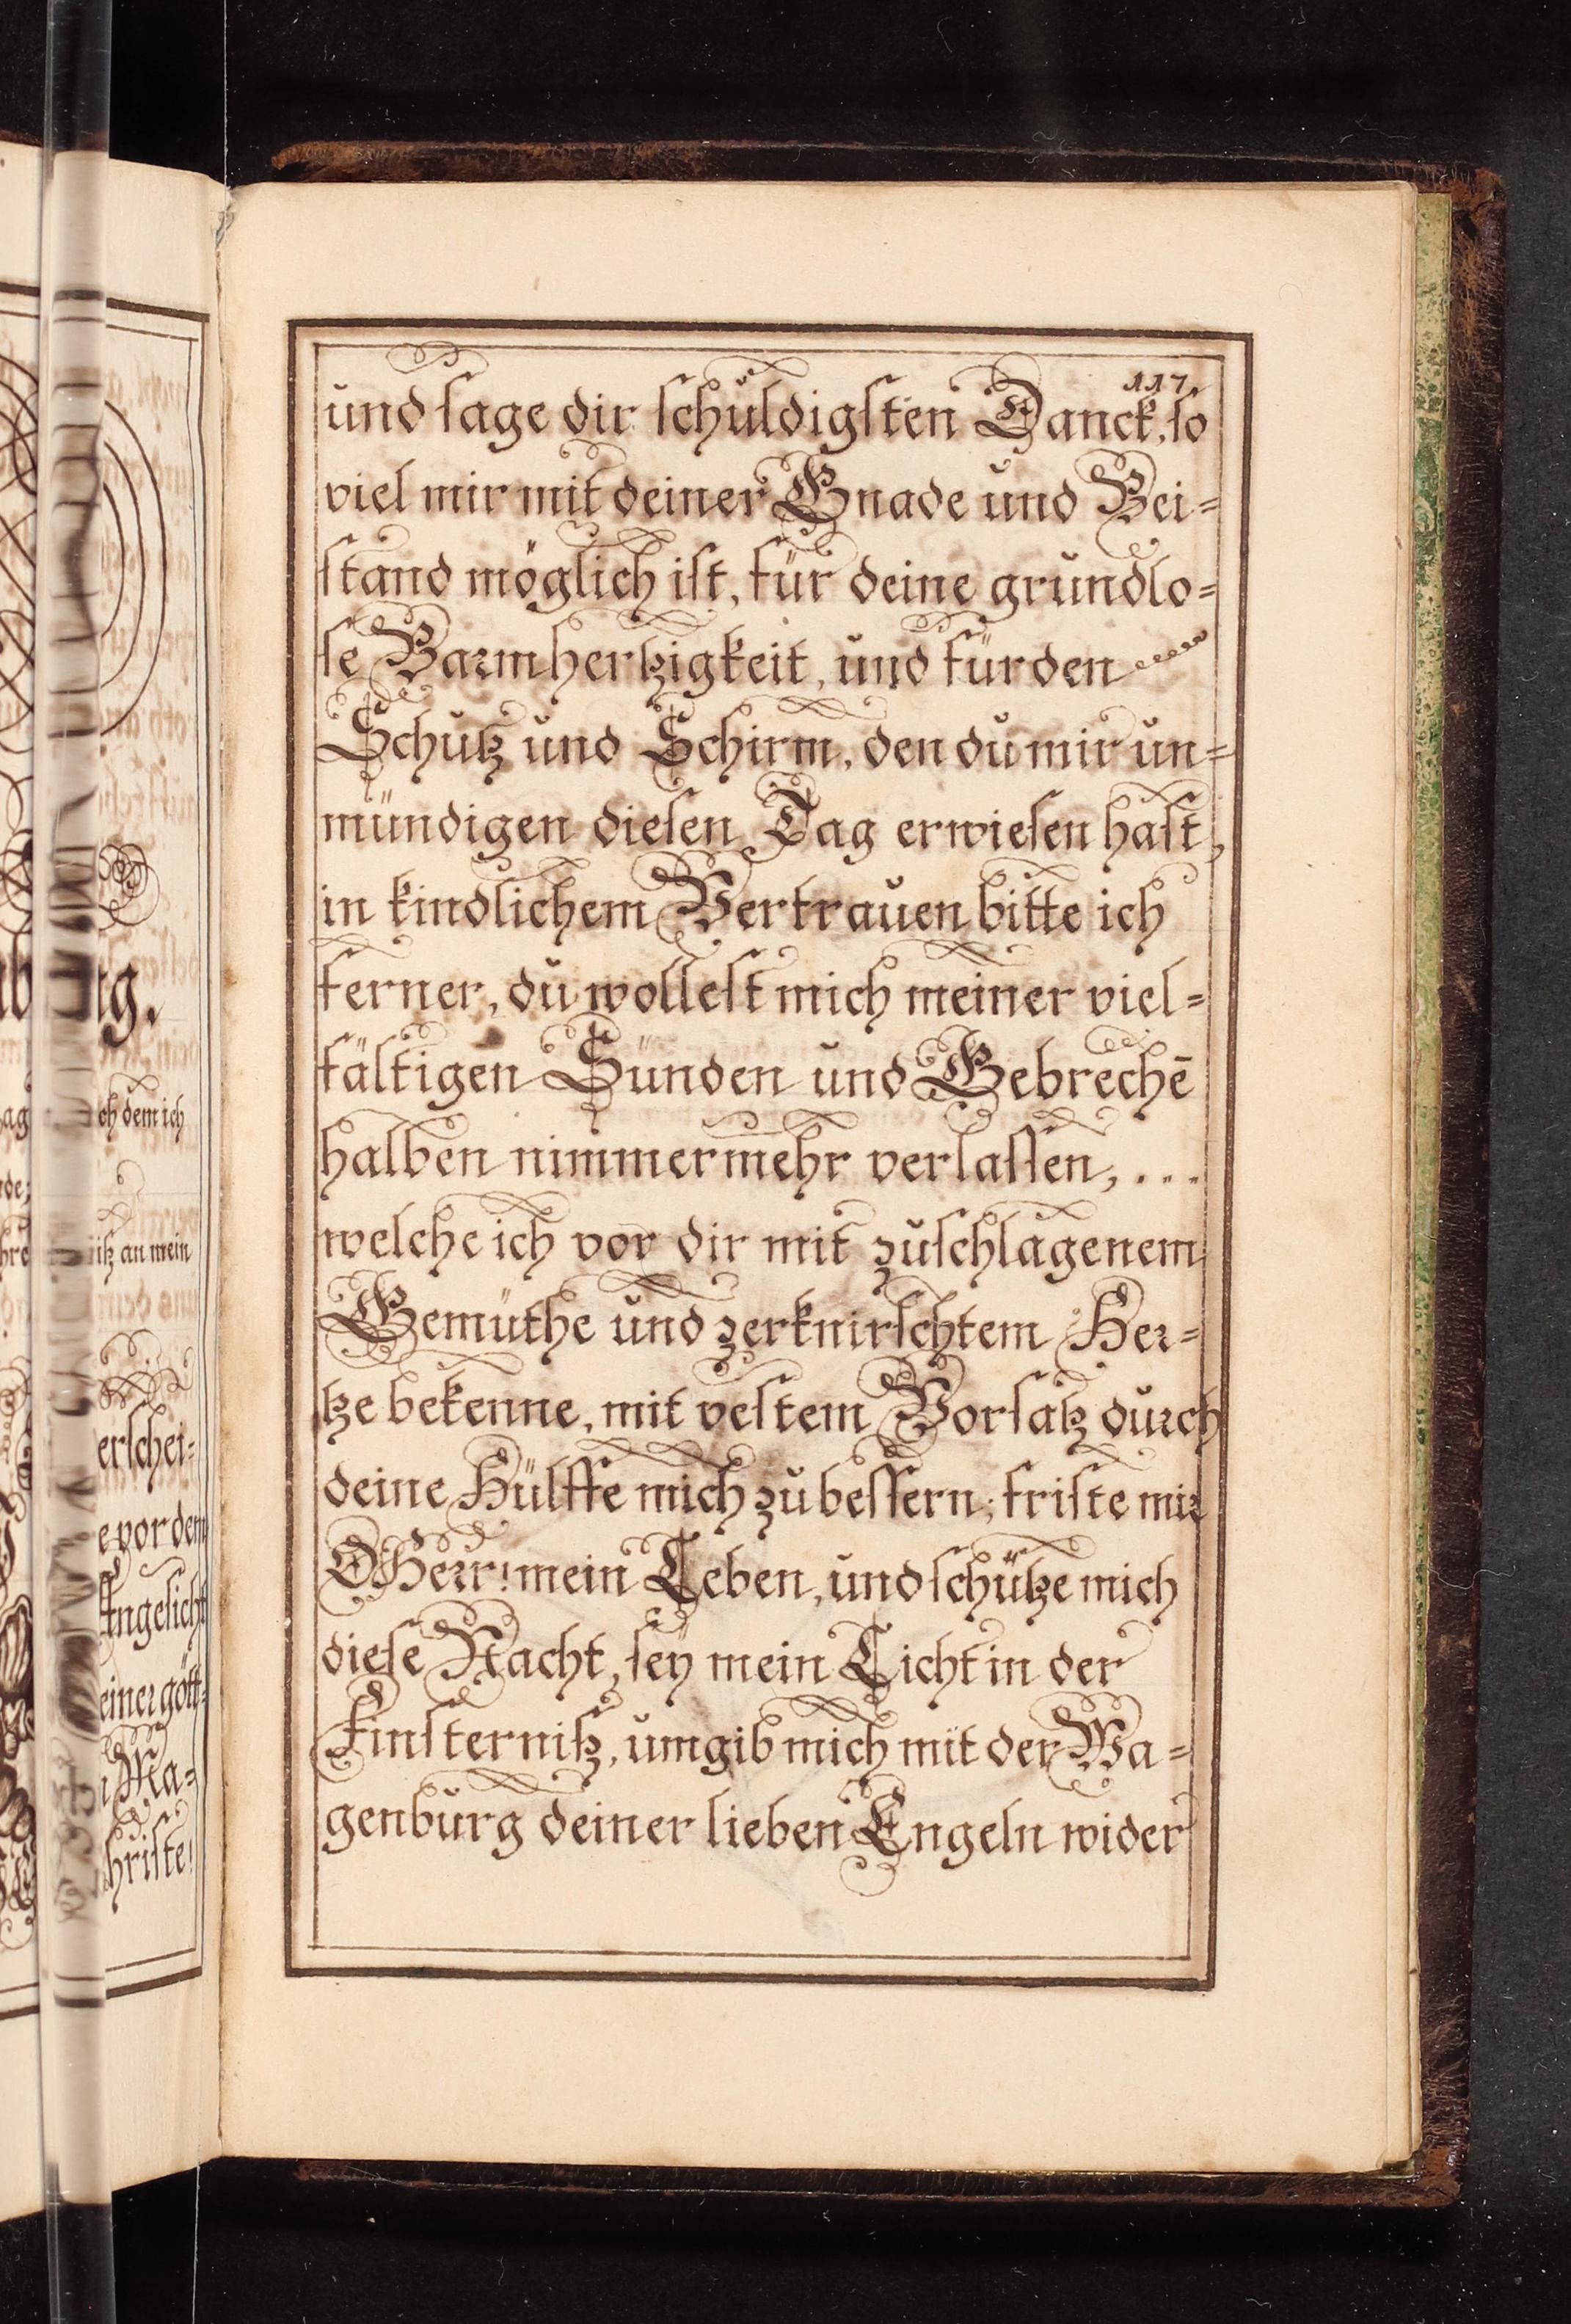 117.
und ſage dir ſchuldigſten Danck, ſo
viel mir mit deiner Gnade und Bei=
ſtand möglich iſt, für deine grundlo=
ſe Barmhertzigkeit, und für den
Schutz und Schirm, den du mir un=
mündigen dieſen Tag erwieſen haſt,
in kindlichem Vertrauen bitte ich
ferner, du wolleſt mich meiner viel=
fältigen Sünden und Gebrechē
halben nimmermehr verlaſſen, ...
welche ich vor dir mit zuſchlagenem
Gemüthe und zerknirſchtem Her=
tze bekenne, mit veſtem Vorſatz durch
deine Hülffe mich zu beſſern; friſte mir
O Herr! mein Leben, und ſchütze mich
dieſe Nacht, ſey mein Licht in der
Finſterniß, umgib mich mit der Wa=
genburg deiner lieben Engeln wider